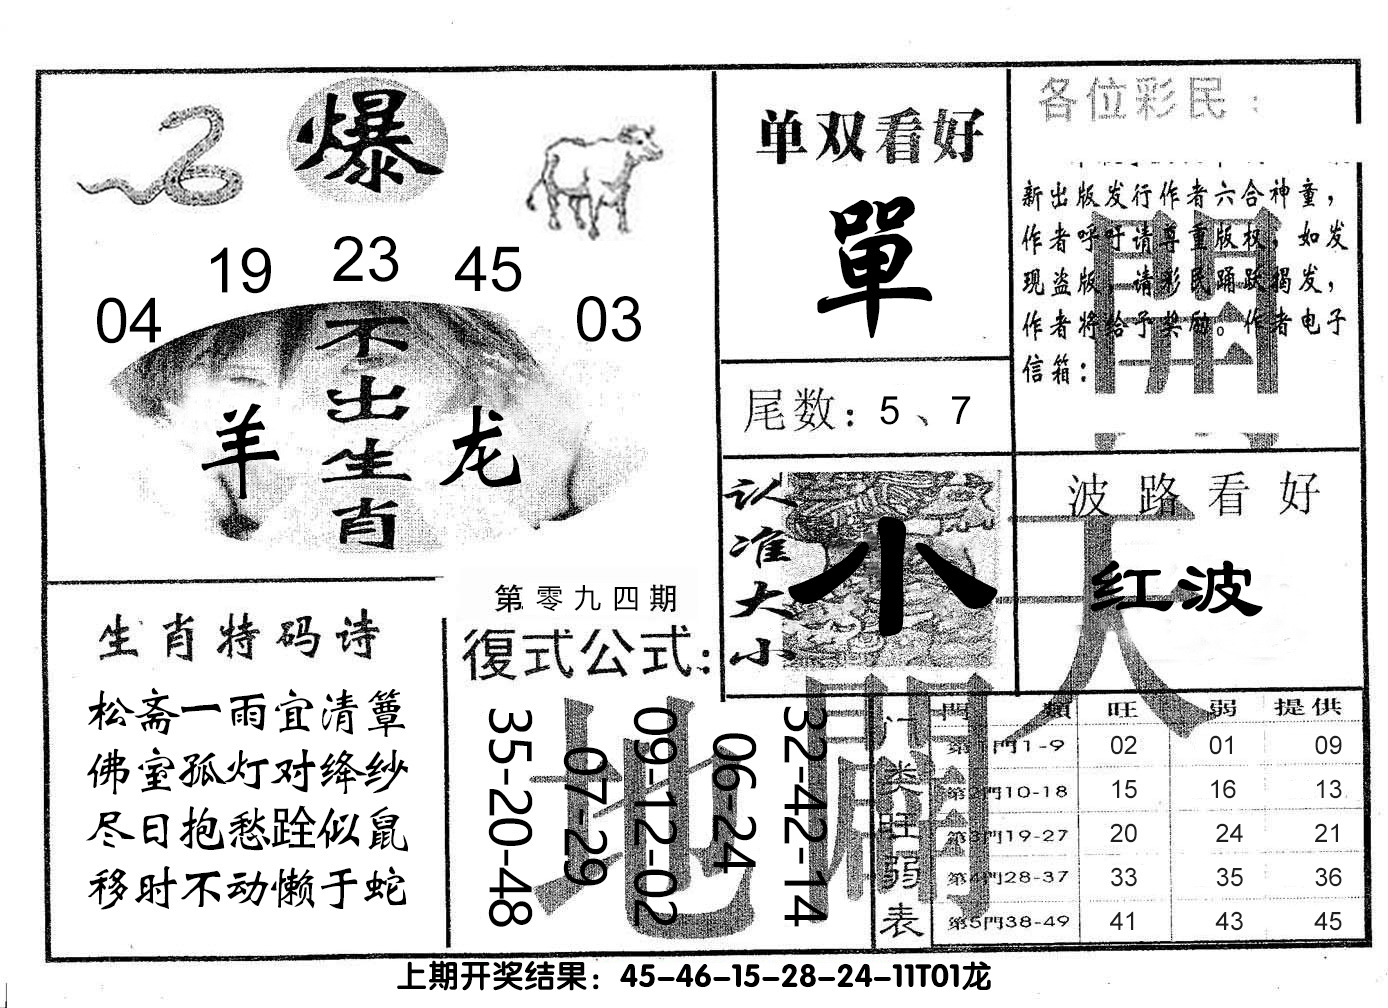 爆
19 23 45
04 03
不出生肖
羊 龙
单双看好
單
尾数：5、7
各位彩民：
新出版发行作者六合神童，
作者呼吁请尊重版权，如发
现盗版，请彩民踊跃揭发，
作者将给予奖励。作者电子
信箱：
認准大小
小
波路看好
红波
生肖特码诗
松斋一雨宜清簟
佛室孤灯对绛纱
尽日抱愁跧似鼠
移时不动懒于蛇
第零九四期
復式公式：
35-20-48
07-29
09-12-02
06-24
32-42-14
天
地
門类旺弱表
門 類 旺 弱 提供
第1門1-9 02 01 09
第2門10-18 15 16 13
第3門19-27 20 24 21
第4門28-37 33 35 36
第5門38-49 41 43 45
上期开奖结果：45-46-15-28-24-11T01龙